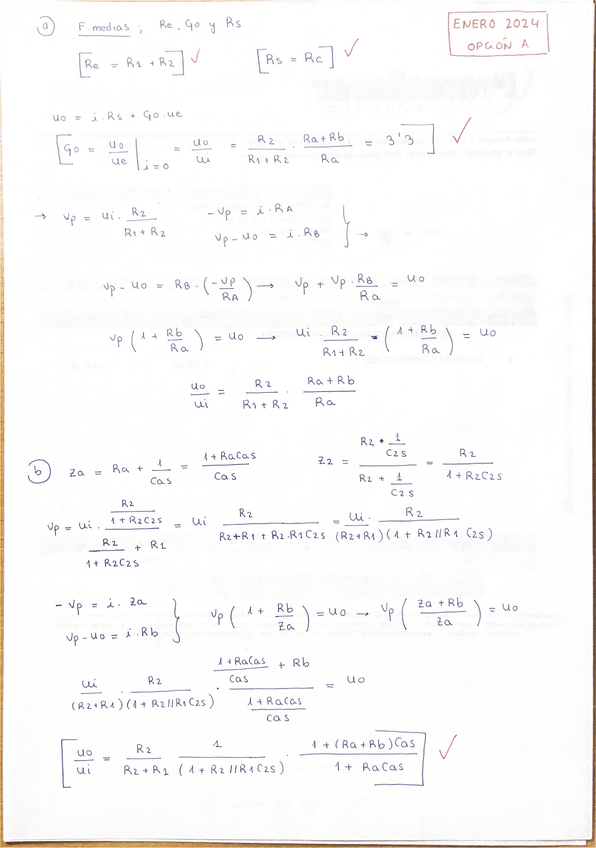 ENERO 2024
OPCIÓN A
a) F. medias, Re, Go y Rs
[Re = R1 + R2] ✓ [Rs = Rc] ✓
uo = i·Rs + Go·ue
[Go = uo/ue |i=0 = uo/ui = R2/(R1+R2) · (Ra+Rb)/Ra = 3'3] ✓
→ vp = ui · R2/(R1+R2) -vp = i·RA
vp - uo = i·RB } →
vp - uo = RB · (-vp/RA) → vp + vp·RB/Ra = uo
vp (1 + Rb/Ra) = uo → ui · R2/(R1+R2) · (1 + Rb/Ra) = uo
uo/ui = R2/(R1+R2) · (Ra+Rb)/Ra
b) Za = Ra + 1/Cas = (1+RaCas)/Cas Z2 = (R2 · 1/C2s)/(R2 + 1/C2s) = R2/(1+R2C2s)
vp = ui · (R2/(1+R2C2s))/(R2/(1+R2C2s) + R1) = ui R2/(R2+R1+R2·R1C2s) = ui · R2/((R2+R1)(1+R2//R1 C2s))
-vp = i·Za
vp-uo = i·Rb } vp (1 + Rb/Za) = uo → vp ((Za+Rb)/Za) = uo
ui/(R2+R1) · R2/(1+R2//R1C2s) · ((1+RaCas)/Cas + Rb)/((1+RaCas)/Cas) = uo
[uo/ui = R2/(R2+R1) 1/(1+R2//R1C2s) · (1+(Ra+Rb)Cas)/(1+RaCas)] ✓